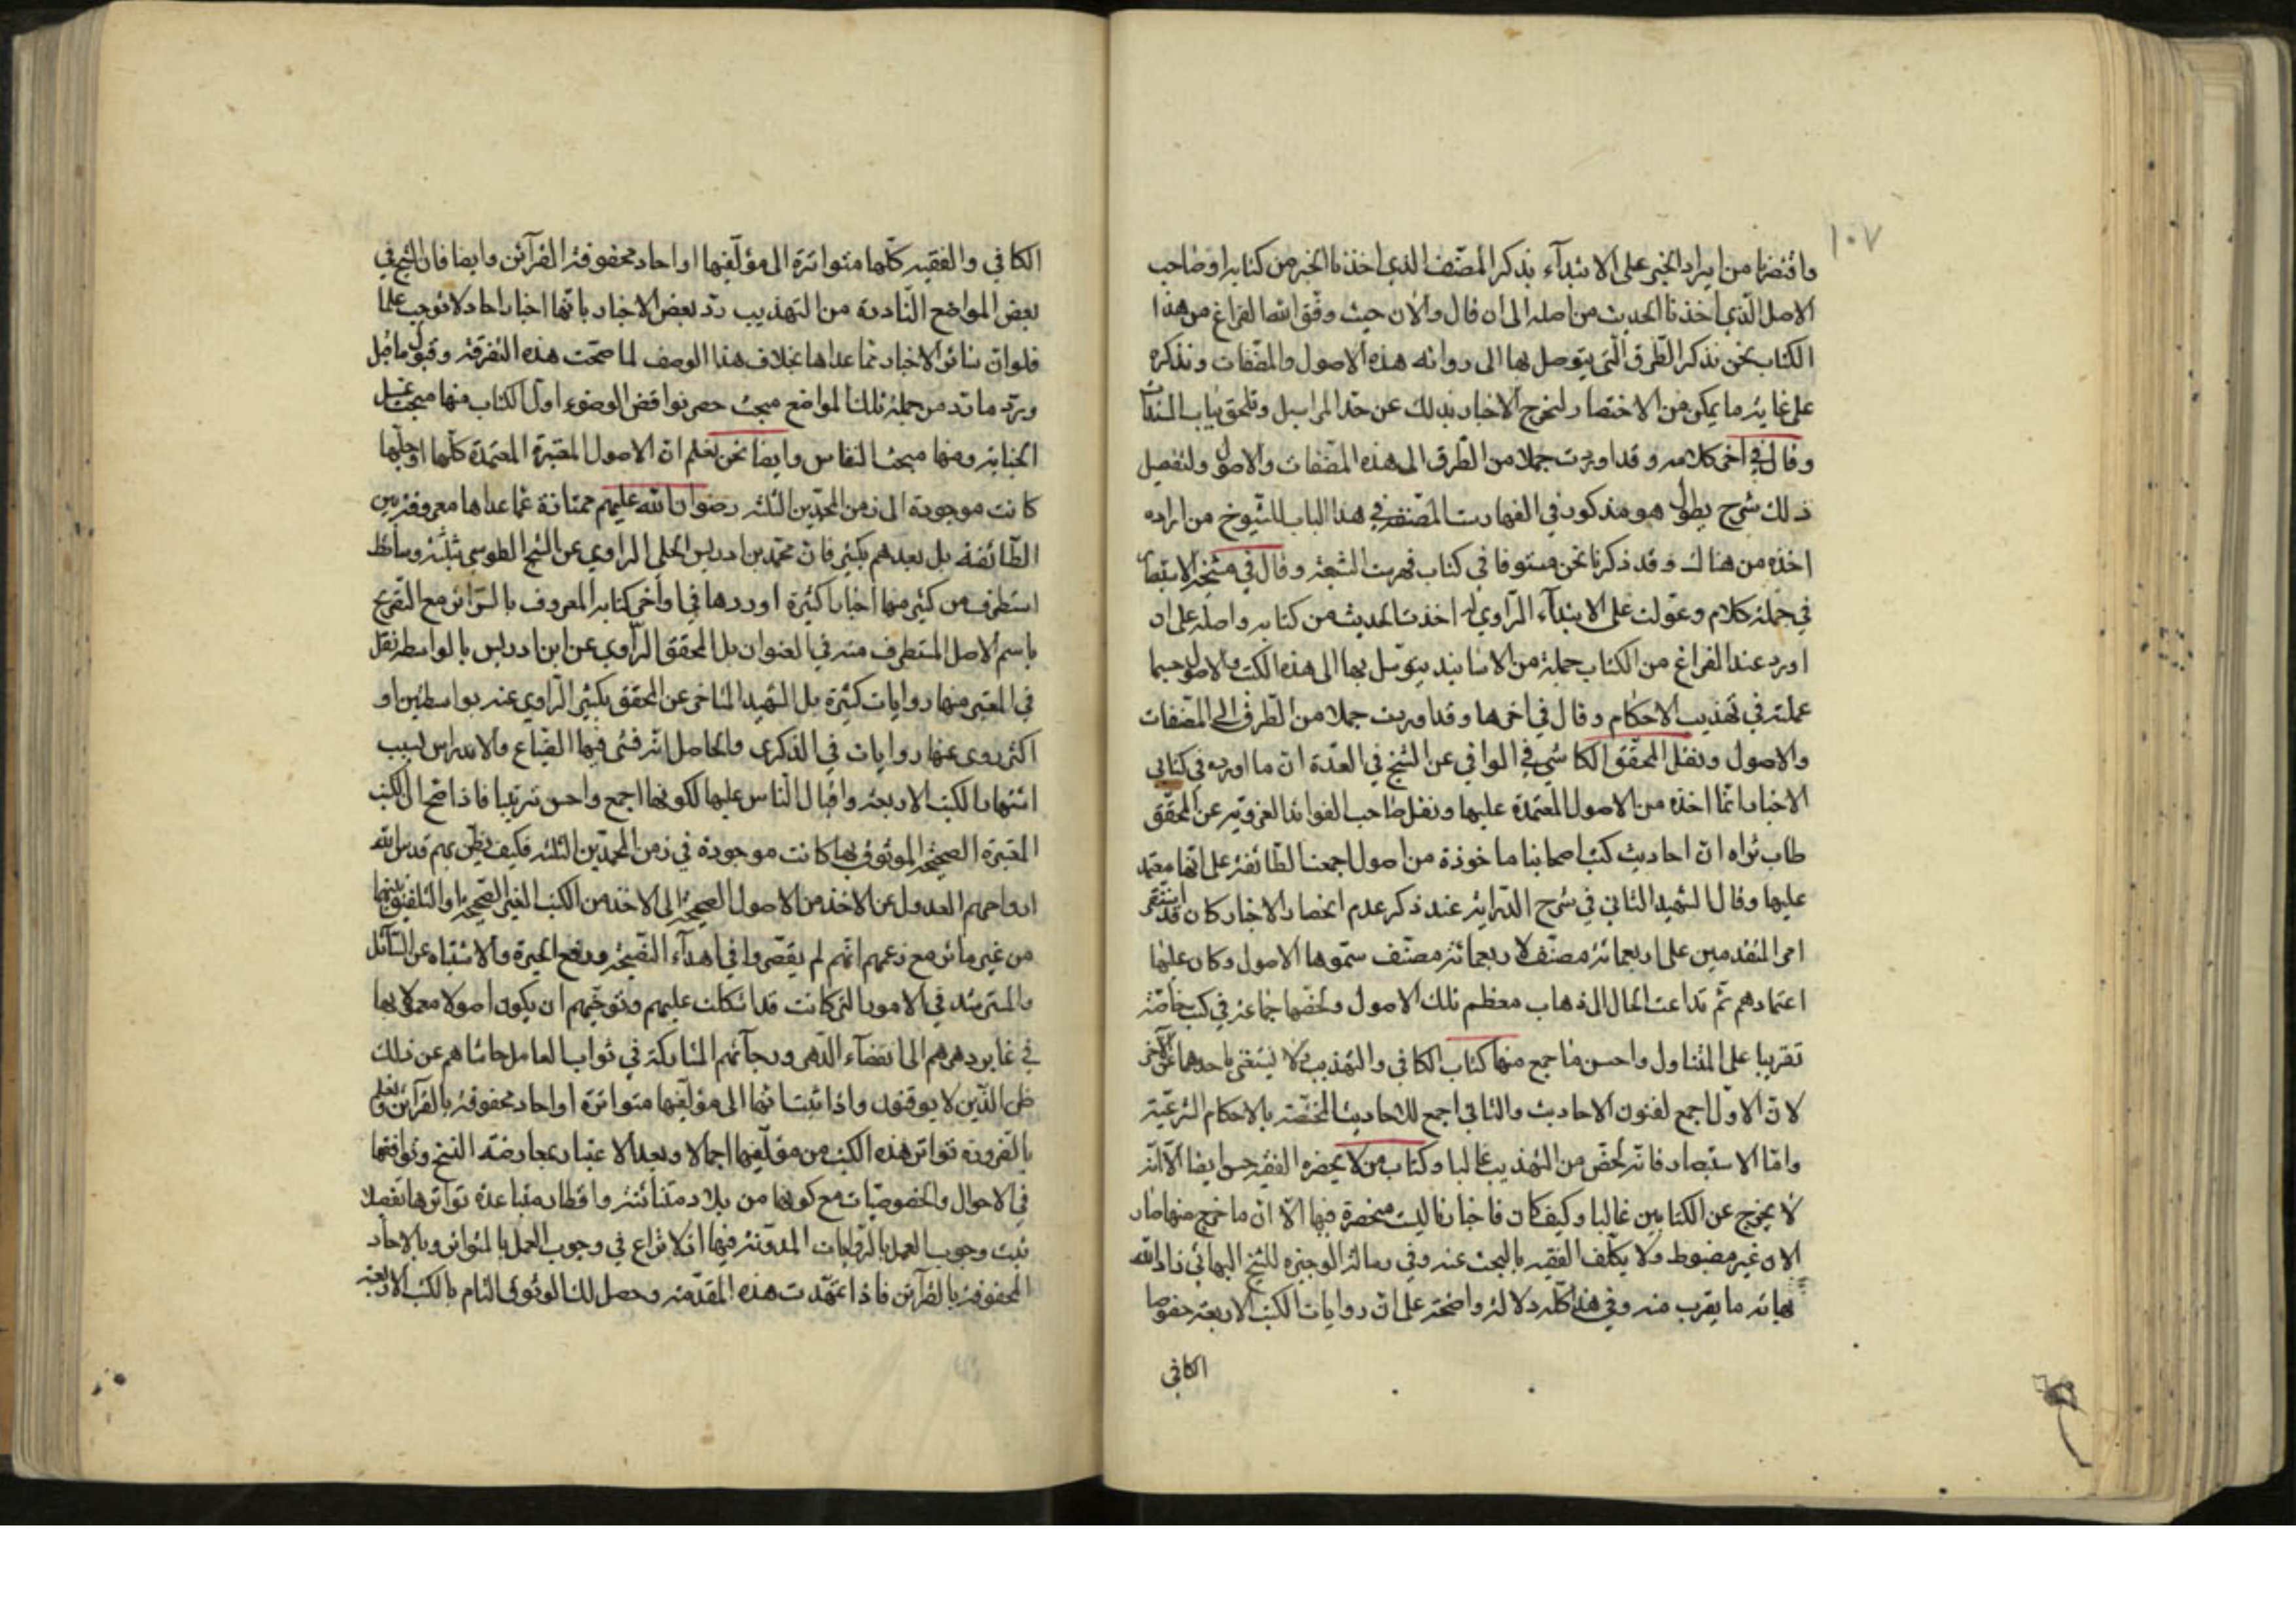 ١٠٧
واقتصرنا من ايراد الخبر على الابتدآء بذكر المصنّف الذي اخذنا الخبر من كتابه او صاحب
الاصل الّذي اخذنا الحديث من اصله الى ان قال والان حيث وفّق الله الفراغ من هذا
الكتاب نحن نذكر الطّرق الّتي يتوصل بها الى رواية هذه الاصول والمصنّفات ونذكره
على غاية ما يمكن من الاختصار لتخرج الاخبار بذلك عن حدّ المراسيل وتلحق بباب المسندات
وقال في اخر كلامه وقد اوردت جملا من الطّرق الى هذه المصنّفات والاصول ولتفصيل
ذلك شرح يطول هو مذكور في الفهارست المصنفة في هذا الباب للشّيوخ من اراده
اخذه من هناك وقد ذكرنا نحن مستوفا في كتاب فهرست الشيعة وقال في مشيخة الاستبصار
في جملة كلام وعوّلت على الابتدآء الرّاوي اخذت الحديث من كتابه واصله على ان
اورد عند الفراغ من الكتاب جملة من الاسانيد يتوسّل بها الى هذه الكتب والاصول حسبما
عملته في تهذيب الاحكام وقال في اخرها وقد اوردت جملا من الطّرق الى المصنّفات
والاصول ونقل المحقّق الكاشي في الوافي عن الشيخ في العدّة ان ما اورده في كتابي
الاخبار انّما اخذه من الاصول المعتمدة عليها ونقل صاحب الفوائد الغرويّة عن المحقّق
طاب ثراه انّ احاديث كتب اصحابنا ماخوذة من اصول اجمعت الطّائفة على انّها معتمد
عليها وقال الشهيد الثاني في شرح الدّراية عند ذكر عدم انحصار الاخبار كان قد استقرّ
امر المتقدمين على اربعمائة مصنّف لاربعمائة مصنّف سمّوها الاصول وكان عليها
اعتمادهم ثمّ تداعت الحال الى ذهاب معظم تلك الاصول ولخصها جماعة في كتب خاصّة
تقريبا على المتناول واحسن ما جمع منها كتاب الكافي والتهذيب لا يستغنى باحدهما عن الآخر
لانّ الاوّل اجمع لفنون الاحاديث والثاني اجمع للاحاديث المختصّة بالاحكام الشرعيّة
وامّا الاستبصار فانّه اخصّ من التهذيب غالبا وكتاب من لا يحضره الفقيه حسن ايضا الّا انّه
لا يخرج عن الكتابين غالبا وكيف كان فاخبارنا ليست منحصرة فيها الّا ان ما خرج منها صار
الان غير مضبوط ولا يكلّف الفقيه بالبحث عنه وفي رسالة الوجيزه للشيخ البهائي زاد الله
بهائه ما يقرب منه وفي هذا كلّه دلالة واضحة على انّ روايات الكتب الاربعة خصوصا
الكافي
الكافي والفقيه كلّها متواترة الى مؤلّفيها او احاد محفوفة القرآئن وايضا فان الشيخ في
بعض المواضع النّادرة من التهذيب ردّ بعض الاخبار بانّها اخبار احاد لا توجب علما
فلو انّ سائر الاخبار ممّا عداها بخلاف هذا الوصف لما صحّت هذه التفرقة وقبول ما قبل
وردّ ما ردّ من جملة تلك المواضع مبحث حصر نواقض الوضوء اول الكتاب منها مبحث غسل
الجنابة ومنها مبحث النفاس وايضا نحن نعلم انّ الاصول المعتبرة المعتمدة كلّها او جلّها
كانت موجودة الى زمن المحمّدين الثلثة رضوان الله عليهم ممتازة عمّا عداها معروفة بين
الطّائفة بل بعدهم بكثير فانّ محمّد بن ادريس الحلي الراوي عن الشيخ الطوسي بثلثة وسائط
استطرف من كثير منها اخبارا كثيرة اوردها في اواخر كتابه المعروف بالسّرائر مع التصريح
باسم الاصل المستطرف منه في العنوان بل المحقق الرّاوي عن ابن ادريس بالواسطة نقل
في المعتبر منها روايات كثيرة بل الشهيد المتاخر عن المحقق بكثير الرّاوي عنه بواسطتين او
اكثر روى عنها روايات في الذكرى والحاصل انّه فشى فيها الضّياع والاندراس بسبب
اشتهار الكتب الاربعة واقبال النّاس عليها لكونها اجمع واحسن ترتيبا فاذا اتضح انّ الكتب
المعتبرة الصحيحة الموثوق بها كانت موجودة في زمن المحمّدين الثلثة فكيف يظنّ بهم قدس الله
ارواحهم العدول عن الاخذ من الاصول الصحيحة الى الاخذ من الكتب الغير الصّحيحة او التلفيق بينهما
من غير مائز مع زعمهم انّهم لم يقصّروا في اهداء النّصيحة ورفع الحيرة والاشتباه عن السّائل
والمسترشد في الامور التي كانت قد اشكلت عليهم وتوخّيهم ان يكون اصولا معمولا بها
في غابر دهرهم الى انقضاء الدّهر ورجآئهم المشاركة في ثواب العامل حاشاهم عن ذلك
ظن الذّين لا يوقنون واذا ثبت انّها الى مؤلّفيها متواترة او احاد محفوفة بالقرآئن ونعلم
بالضّرورة تواتر هذه الكتب من مؤلّفيها اجمالا وبعد الاعتبار بمعارضة النسخ وتوافقها
في الاحوال والخصوصيّات مع كونها من بلاد متنائية واقطار متباعدة تواترها تفصيلا
ثبت وجوب العمل بالرّوايات المدوّنة فيها اذ لا نزاع في وجوب العمل بالمتواتر وبالاحاد
المحفوفة بالقرآئن فاذا تمهّدت هذه المقدّمة وحصل لك الوثوق التام بالكتب الاربعة